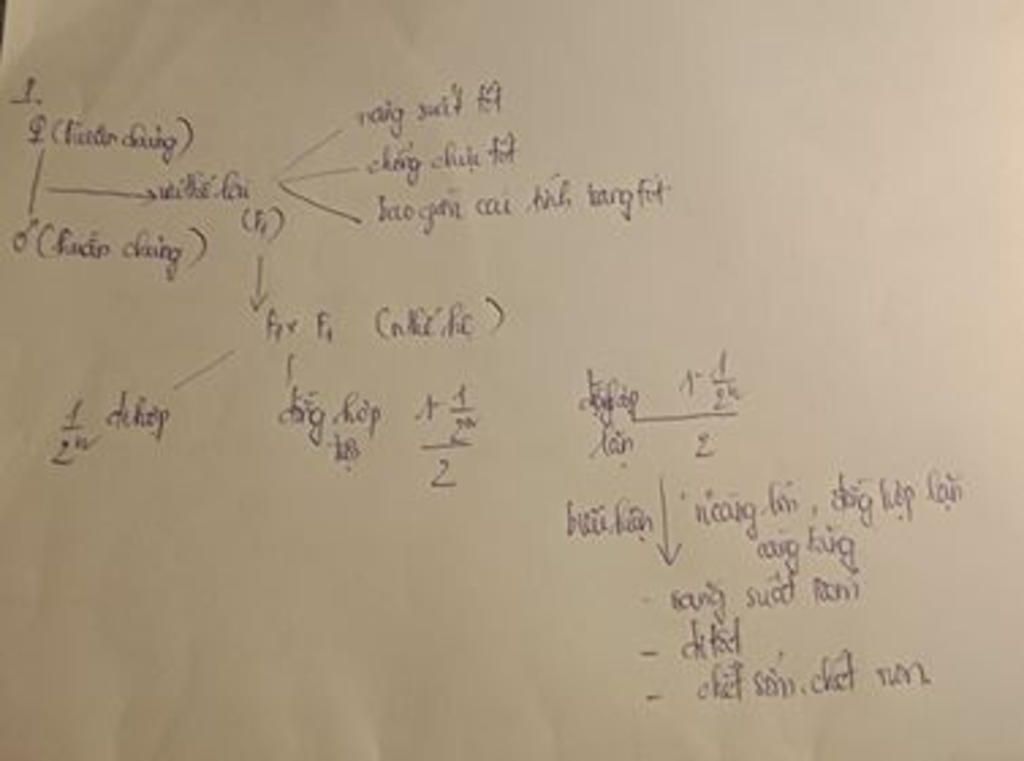 1.
♀ (thuần chủng)
ưu thế lai
(F1)
♂ (thuần chủng)
năng suất tốt
chống chịu tốt
bao gồm các tính trạng tốt
F1 x F1 (n thế hệ)
1/2^n dị hợp
đồng hợp trội (1 - 1/2^n)/2
đồng hợp lặn (1 - 1/2^n)/2
biểu hiện
n càng lớn, đồng hợp lặn
càng tăng
- năng suất giảm
- dị tật
- chết sớm, chết non